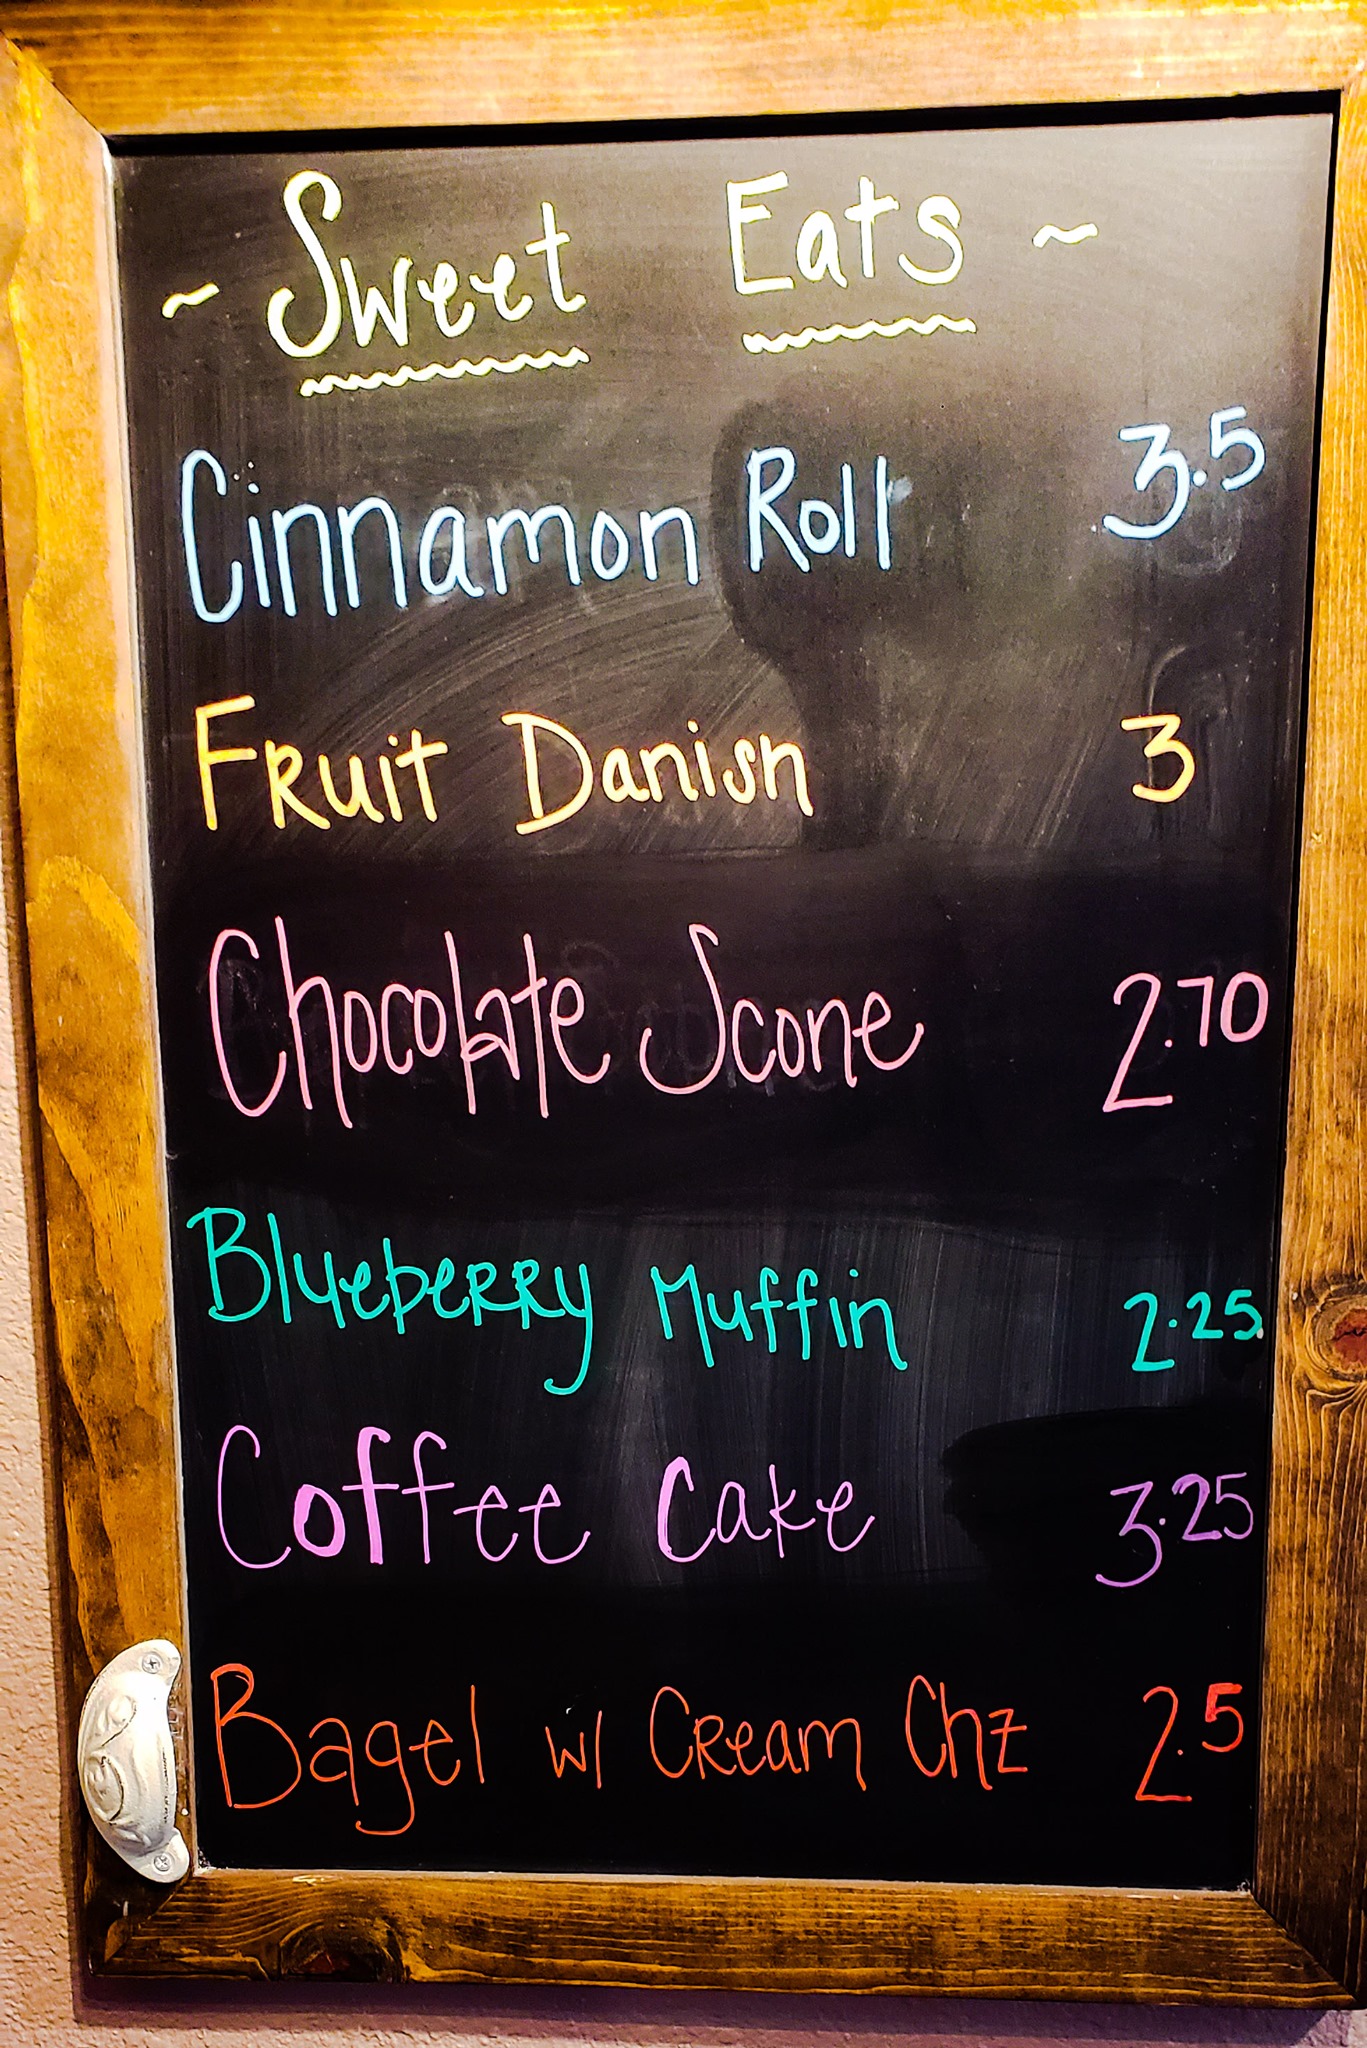 ~ Sweet Eats ~
Cinnamon Roll 3.5
Fruit Danish 3
Chocolate Scone 2.70
Blueberry Muffin 2.25
Coffee Cake 3.25
Bagel w/ Cream Chz 2.5